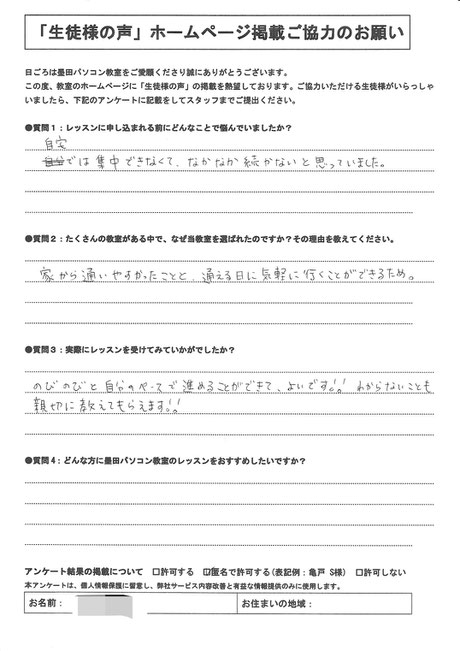 「生徒様の声」ホームページ掲載ご協力のお願い
日ごろは墨田パソコン教室をご愛顧くださり誠にありがとうございます。
この度、教室のホームページに「生徒様の声」の掲載を熱望しております。ご協力いただける生徒様がいらっしゃ
いましたら、下記のアンケートに記載をしてスタッフまでご提出ください。
●質問1：レッスンに申し込まれる前にどんなことで悩んでいましたか？
自宅
自分では集中できなくて、なかなか続かないと思っていました。
●質問2：たくさんの教室がある中で、なぜ当教室を選ばれたのですか？その理由を教えてください。
家から通いやすかったことと、通える日に気軽に行くことができるため。
●質問3：実際にレッスンを受けてみていかがでしたか？
のびのびと自分のペースで進めることができて、よいです!! わからないことも
親切に教えてもらえます!!
●質問4：どんな方に墨田パソコン教室のレッスンをおすすめしたいですか？
アンケート結果の掲載について　□許可する　☑匿名で許可する（表記例：亀戸 S様）　□許可しない
本アンケートは、個人情報保護に留意し、弊社サービス内容改善と有益な情報提供のみに使用します。
お名前：　お住まいの地域：